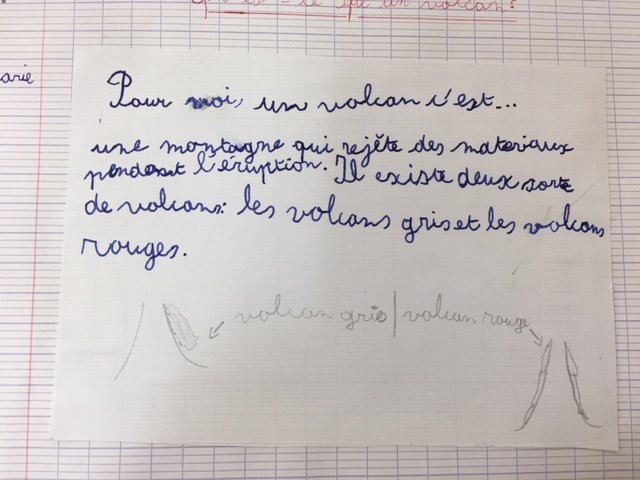 Qu'est-ce que un volcan?
arie
Pour moi, un volcan c'est...
une montagne qui rejête des materiaux
pendant l'éruption. Il existe deux sorte
de volcans: les volcans gris et les volcans
rouges.
volcan gris | volcan rouge